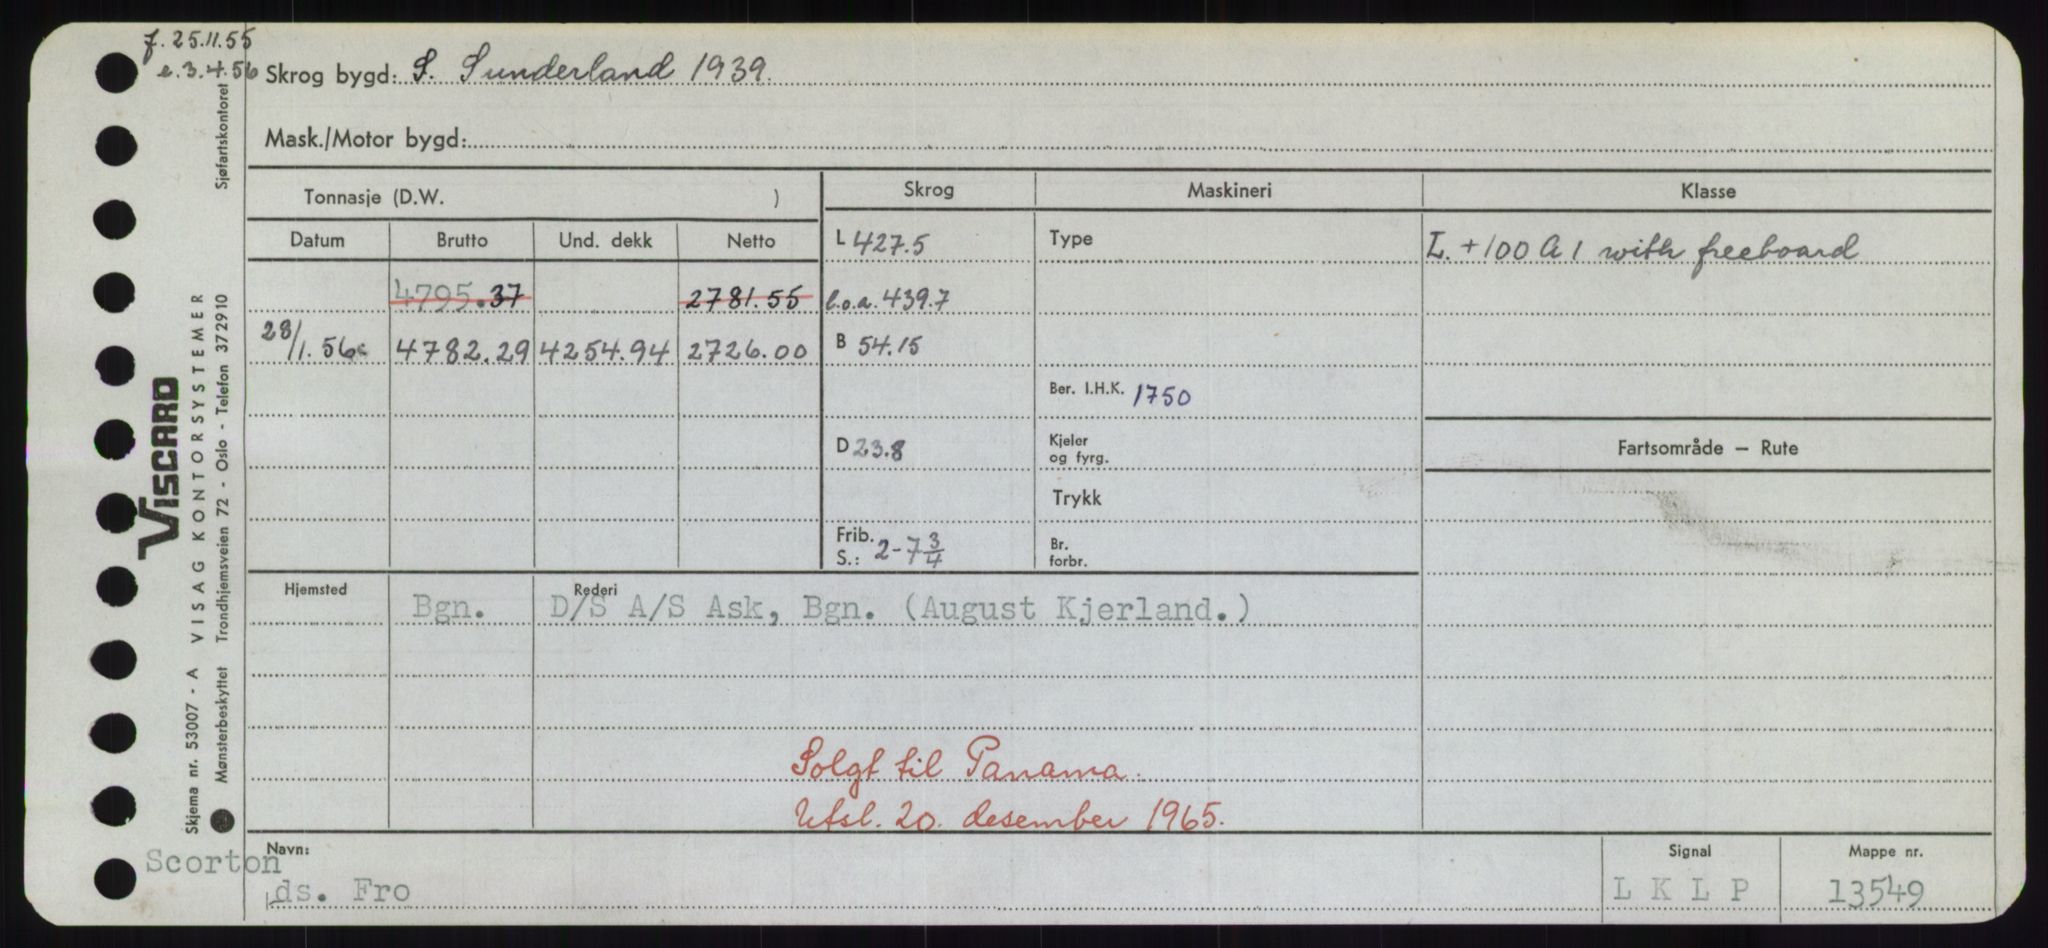 f. 25.11.55
e. 3.4.56
Skrog bygd: S. Sunderland 1939.
Mask./Motor bygd:
Tonnasje (D.W. )
Skrog
Maskineri
Klasse
Datum Brutto Und. dekk Netto
L 427.5
Type
L. +100 A 1 with freeboard
4795.37 2781.55
l.o.a. 439.7
28/1. 56 4782.29 4254.94 2726.00
B 54.15
Ber. I.H.K. 1750
D 23.8
Kjeler
og fyrg.
Fartsområde – Rute
Trykk
Frib.
S.: 2-7 3/4
Br.
forbr.
Hjemsted Rederi
Bgn. D/S A/S Ask, Bgn. (August Kjerland.)
Solgt til Panama.
Utsl. 20. desember 1965.
Navn:
Scorton
ds. Fro
Signal
L K L P
Mappe nr.
13549
VISCARD
Skjema nr. 53007 - A VISAG KONTORSYSTEMER
Mønsterbeskyttet Trondhjemsveien 72 - Oslo - Telefon 372910 Sjøfartskontoret